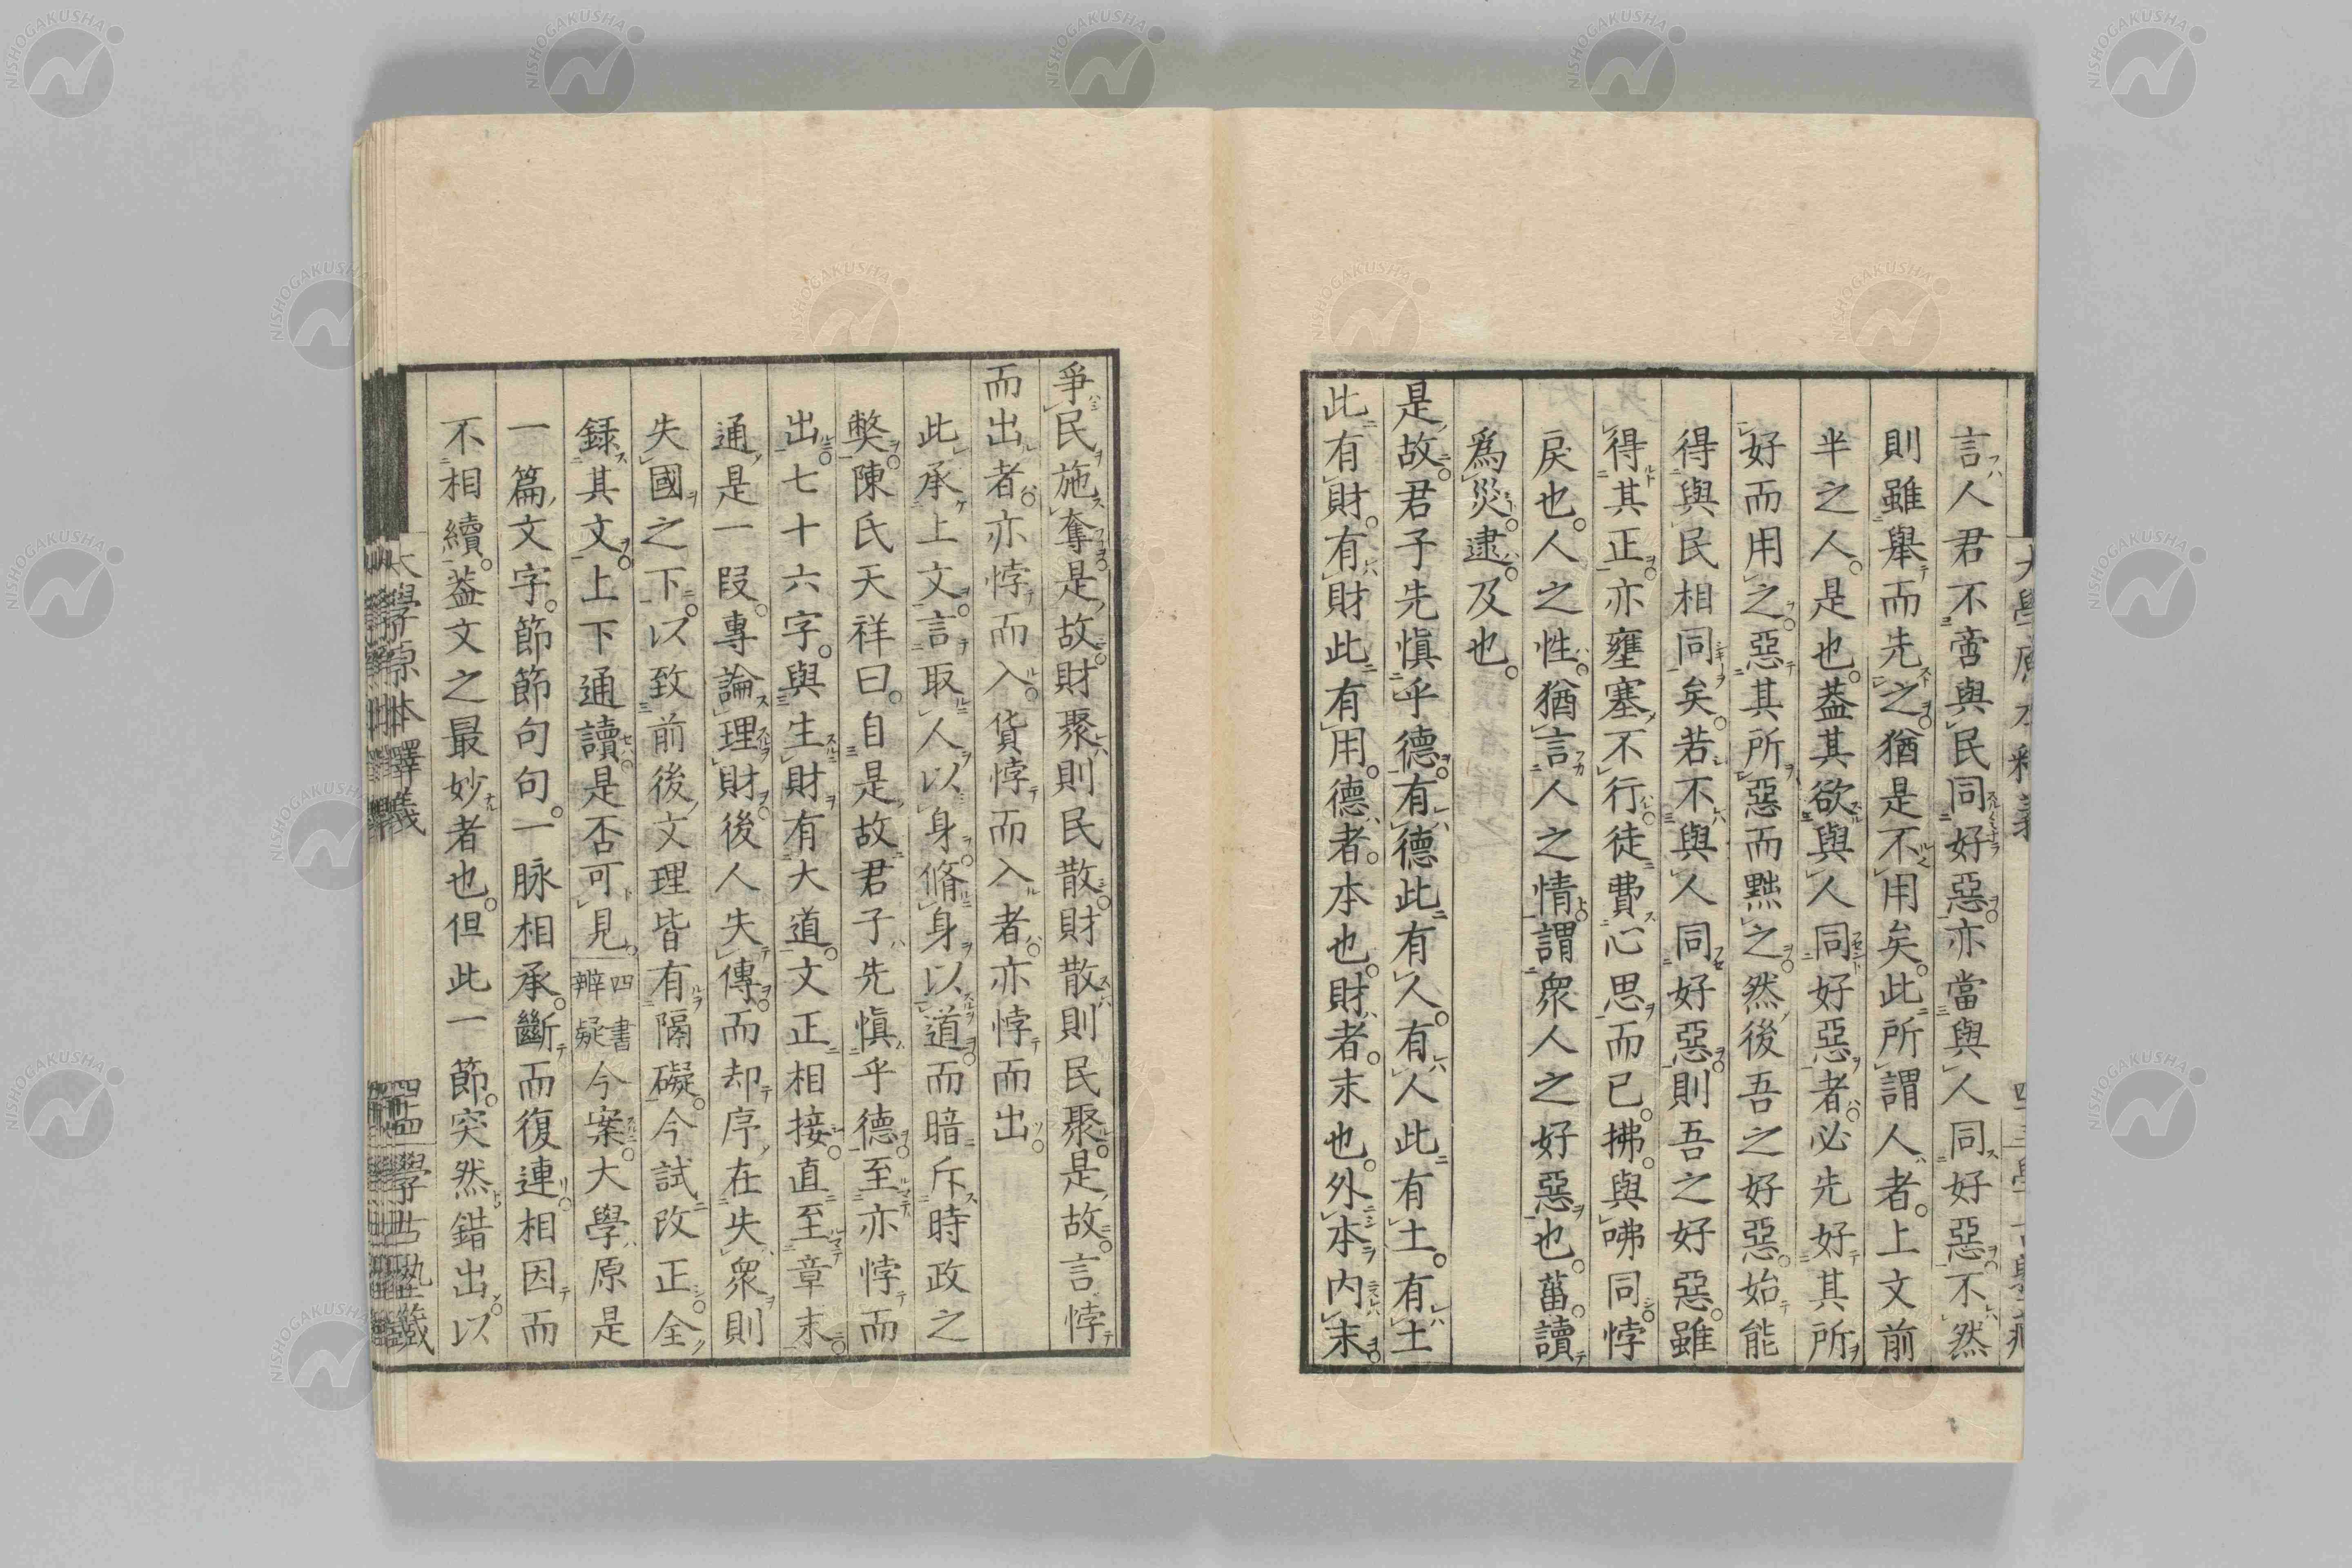 言人君不啻與民同好惡亦當與人同好惡不然
則雖舉而先之猶是不用矣此所謂人者上文前
半之人是也蓋其欲與人同好惡者必先好其所
好而用之惡其所惡而黜之然後吾之好惡始能
得與民相同矣若不與人同好惡則吾之好惡雖
得其正亦壅塞不行徒費心思而已拂與咈同悖
戾也人之性猶言人之情謂衆人之好惡也菑讀
爲災逮及也
是故君子先愼乎德有德此有人有人此有土有土
此有財有財此有用德者本也財者末也外本内末
爭民施奪是故財聚則民散財散則民聚是故言悖
而出者亦悖而入貨悖而入者亦悖而出
此承上文言取人以身脩身以道而暗斥時政之
獘陳氏天祥曰自是故君子先愼乎德至亦悖而
出七十六字與生財有大道文正相接直至章末
通是一段專論理財後人失傳而却序在失衆則
失國之下以致前後文理皆有隔礙今試改正全
録其文上下通讀是否可見四書辨疑今案大學原是
一篇文字節節句句一脉相承斷而復連相因而
不相續蓋文之最妙者也但此一節突然錯出以
大學原本釋義